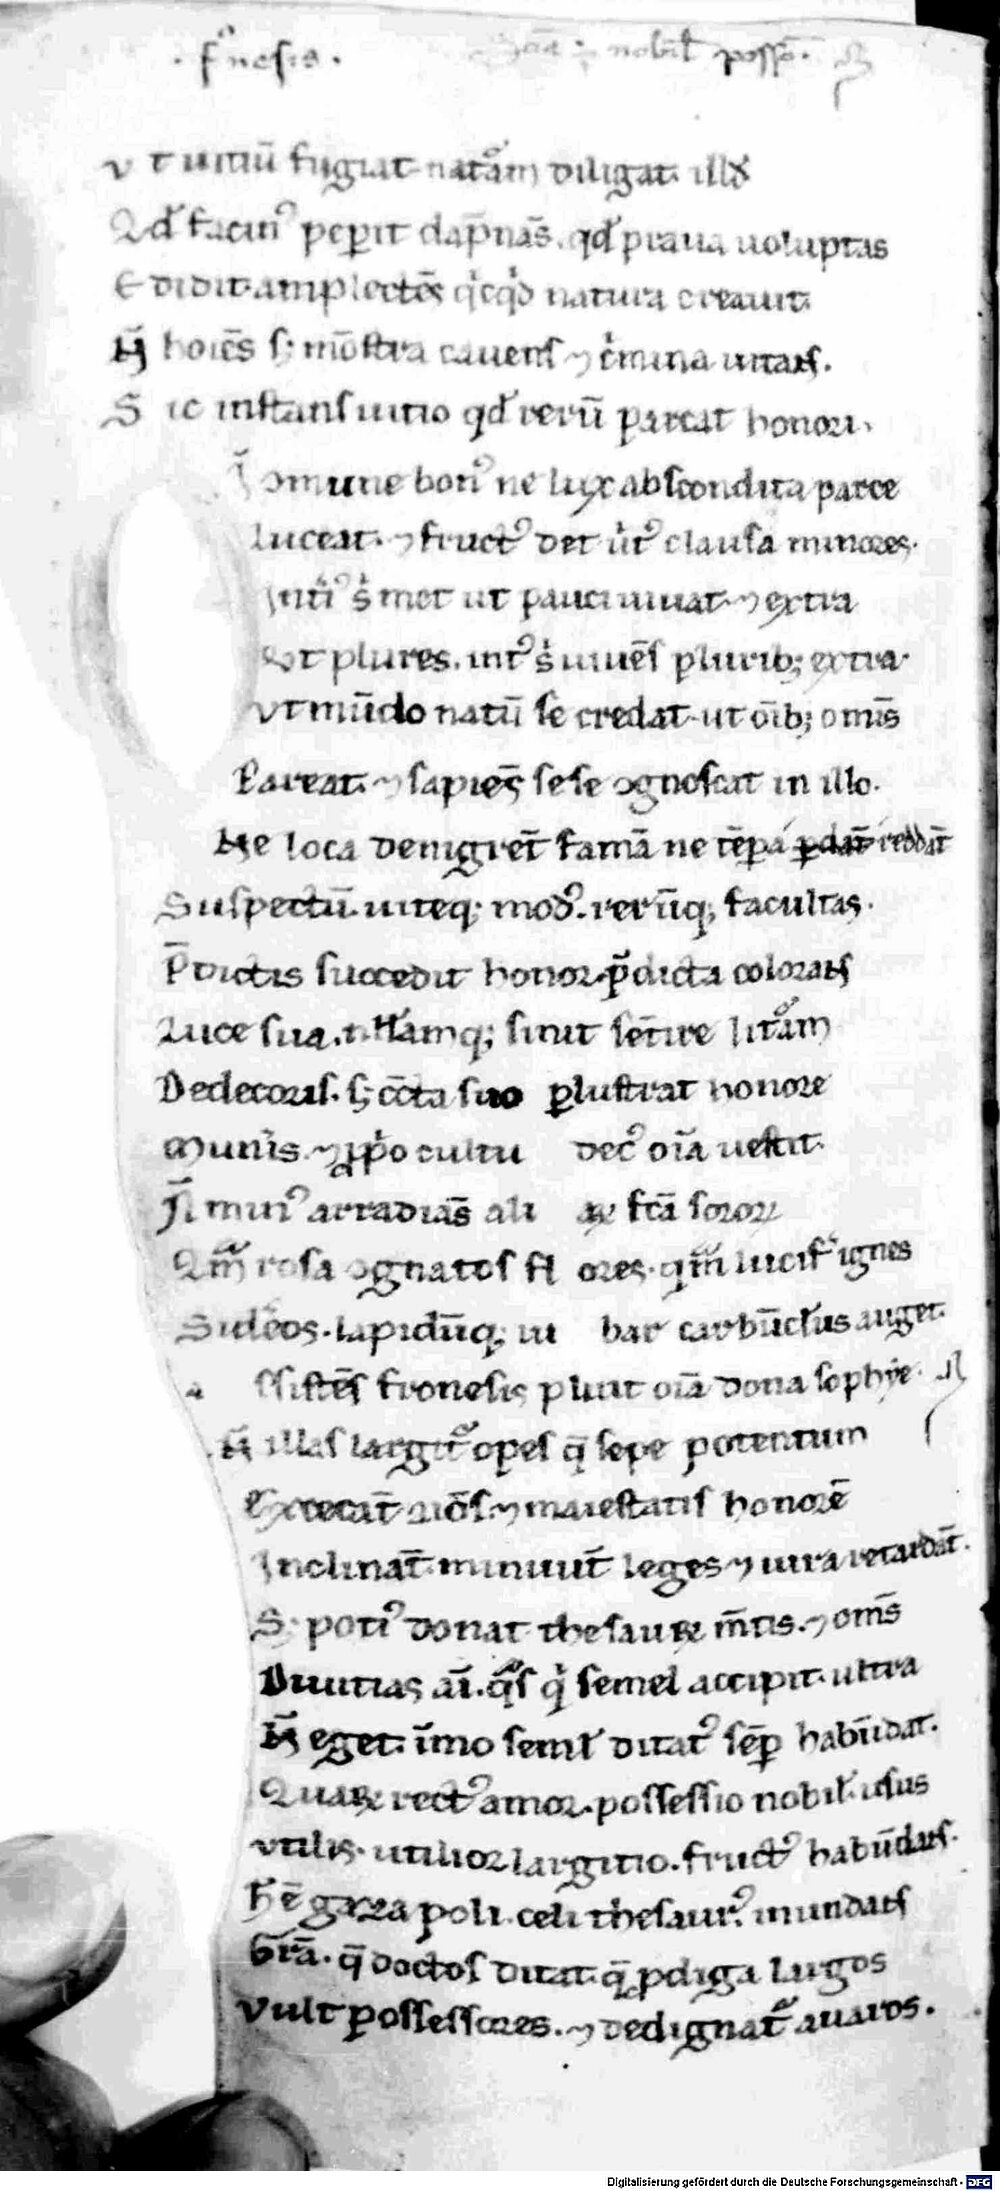 · fͬnesis ·
nobil̄ possō.
vt uitiū fugiat naturam diligat. illd̾
Qd̾ facin᷒ peꝑit dāpnās. qd̾ praua uoluptas
Edidit. amplectēs qͥcqͥd natura creauit.
N̄ hoīes sꝫ mōstra cauens ⁊ cͥmina uitans.
Sic instans uitio qd̾ rerū parcat honori.
ne lux abscondita parce
Luceat. ⁊ fruct᷒ det uͥt᷒ clausa minores.
Int᷒ sͥ met ut pauci uiuat. ⁊ extra
Vt plures. int᷒ sͥ uiuēs pluribꝫ extra.
vt mūdo natū se credat. ut oībꝫ omīs
Pareat. ⁊ sapiēs sese ꝯgnoscat in illo.
Ne loca denigrēt famā ne tēpa reddāt
Suspectū. uiteqꝫ mod᷒. rerūqꝫ facultas.
P̄dictis succedit honor. p̄dicta colorans
Luce sua. nllamqꝫ sinit sētire lituram
Dedecoris. sꝫ cūcta suo ꝑlustrat honore
Muniͥs. ⁊ ꝓpͥo cultu dec᷒ oīa uestit.
N̄ min᷒ arradiās aliaꝝ fcā soroꝝ
Qͣm rosa ꝯgnatos flores. qͣm lucif̾ ignes
Sidēos. lapidūqꝫ iubar carbūcl̾us auget.
ssistēs fronesis pluit oīa dona sophye.
N̄ illas largitͬ opes q̄ sepe potentum
Excecāt aīos. ⁊ maiestatis honorē
Inclināt. minuūt leges ⁊ iura retardāt.
Sꝫ poti᷒ donat thesauꝝ mētis. ⁊ om̄s
Diuitias aī. qͣs qͥ semel accipit. ultra
N̄ eget. īmo semͣl ditat᷒ sēꝑ habūdat.
Quaꝝ rect᷒ amor. possessio nobil̾. usus
vtilis. utilior largitio. fruct᷒ habūdans.
H̄ ē gaza poli. celi thesaur᷒. mundans
Gr̄a. q̄ doctos ditat. q̄ ꝓdiga largos
Vult possessores. ⁊ dedignatͬ auaros.
Digitalisierung gefördert durch die Deutsche Forschungsgemeinschaft - DFG